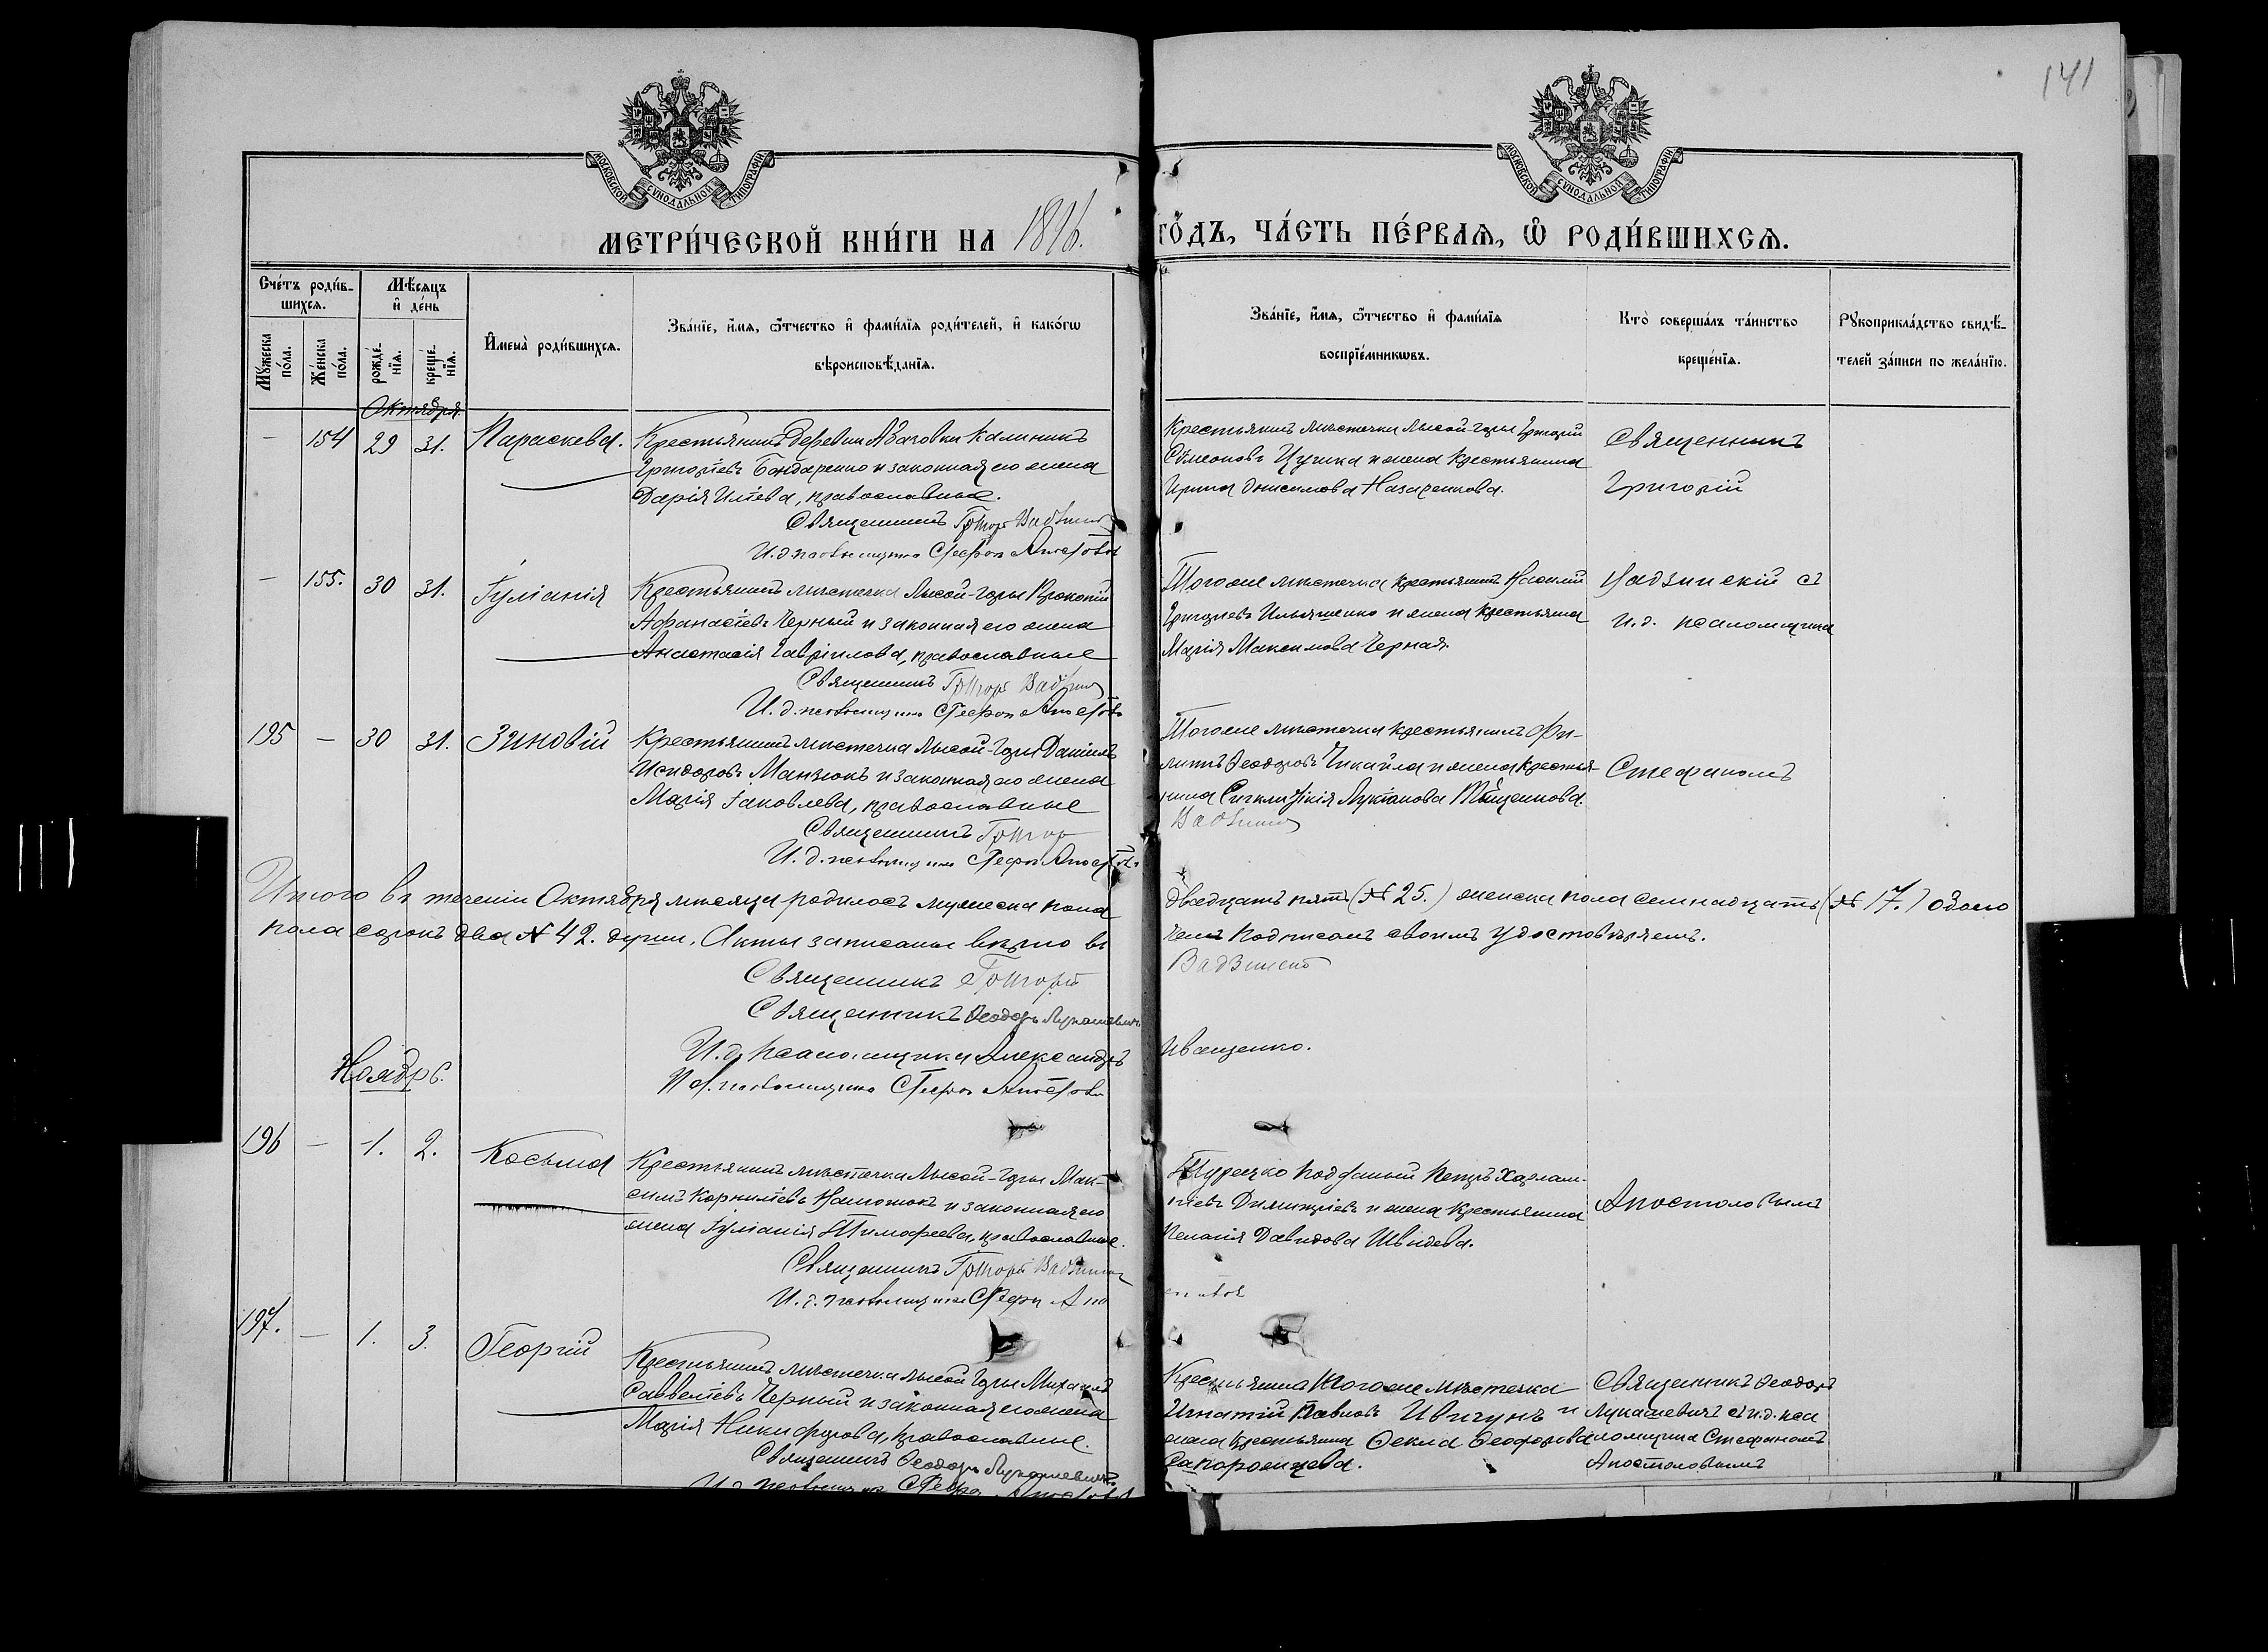 141
МОСКОВСКОЙ СУНОДАЛЬНОЙ ТИПОГРАФІИ
МОСКОВСКОЙ СУНОДАЛЬНОЙ ТИПОГРАФІИ
МЕТРИ́ЧЕСКОЙ КНИ́ГИ НА 1896.
ГО́ДЪ, ЧА́СТЬ ПЕ́РВАѦ, Ѡ҆ РОДИ́ВШИХСѦ.
Сче́тъ роди́в-
шихсѧ.
Мꙋ́жеска по́ла.
Же́нска по́ла.
Мѣ́сѧцъ
и҆ де́нь
рожде́-
нїѧ.
креще́-
нїѧ.
И҆мена̀ роди́вшихсѧ.
Зва́нїе, и҆́мѧ, ѻ҆́тчество и҆ фами́лїѧ роди́телей, и҆ како́гѡ
вѣроисповѣ́данїѧ.
Зва́нїе, и҆́мѧ, ѻ҆́тчество и҆ фами́лїѧ
воспрїе́мникѡвъ.
Кто̀ соверша́лъ та́инство
креще́нїѧ.
Рꙋкоприкла́дство свидѣ́-
телей за́писи по жела́нїю.
Октября.
— 154 29 31. Параскева.
Крестьянинъ деревни Калиникъ
Григоріевъ Бондаренко и законная его жена
Дарія Иліева, православные.
Священникъ Григорій
И. д. псаломщика Стефанъ Апостоловъ
Крестьянинъ мѣстечка Лысой-Горы Григорій
Симеоновъ и жена крестьянина
Ирина Онисимова Назаренкова.
Священникъ
Григорій
— 155. 30 31. Іуліанія
Крестьянинъ мѣстечка Лысой-Горы Прокопій
Афанасіевъ Черный и законная его жена
Анастасія Гавріилова, православные
Священникъ Григорій
И. д. псаломщика Стефанъ Апостоловъ
Тогоже мѣстечка крестьянинъ Василій
Григорьевъ Ильяшенко и жена крестьянина
Марія Максимова Черная.
Вадзинскій съ
и. д. псаломщика
195 — 30 31. Зиновій
Крестьянинъ мѣстечка Лысой-Горы Даніилъ
Исидоровъ Манзюкъ и законная его жена
Марія Іаковлева, православные
Священникъ Григор
И. д. псаломщика Стефанъ Апостоловъ
Тогоже мѣстечка крестьянинъ Фи-
липпъ Ѳеодоровъ Чикайла и жена крестья-
нина Лукіанова Тыщенкова.
Стефаномъ
Итого въ теченіи Октября мѣсяца родилось мужеска пола
двадцать пять (№ 25.) женска пола семнадцать (№ 17.) обоего
пола сорокъ два № 42. души. Акты записаны вѣрно въ
чемъ подписомъ своимъ удостовѣряемъ.
Священникъ Григорій
Вадзинскій
Священникъ Ѳеодоръ Лукашевичъ
И. д. псаломщика Александръ
Иващенко.
И. д. псаломщика Стефанъ Апостоловъ
Ноябрь.
196 — 1. 2. Косьма
Крестьянинъ мѣстечка Лысой-Горы Мак-
симъ Корниліевъ и законная его
жена Іуліанія Тимофеева, православные.
Священникъ Григорій Вадзинскій
И. д. псаломщика Стефанъ Апо
Турецко подданый Петръ Харлам-
піевъ Димитріевъ и жена крестьянина
Пелагія Давидова Швидева.
Апостоловымъ
197. — 1. 3. Георгій
Крестьянинъ мѣстечка Лысой Горы Михаилъ
Савеліевъ Черный и законная его жена
Марія Никифорова, православные.
Священникъ Ѳеодоръ Лукашевичъ
И. д. псаломщика Стефанъ Апостоловъ
Крестьянина тогоже мѣстечка
Игнатій Павловъ Ивчунъ и
жена крестьянина Ѳекла Ѳеодорова
Запорожцева.
Священникъ Ѳеодоръ
Лукашевичъ съ и. д. пса
ломщика Стефаномъ
Апостоловымъ